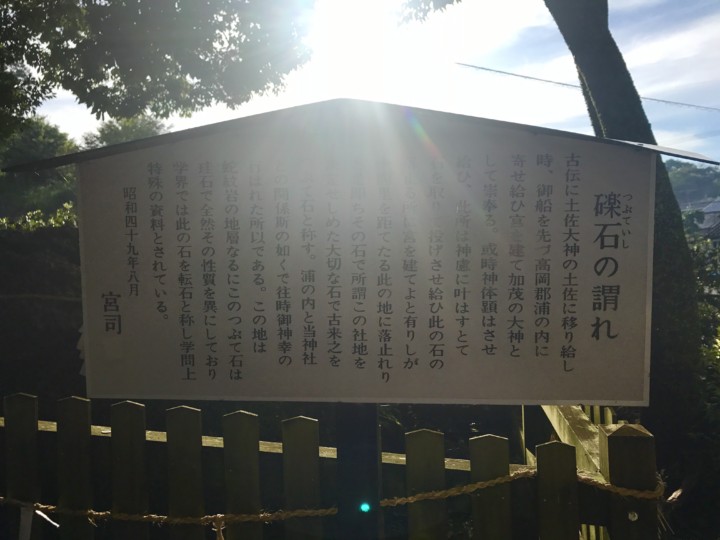 礫石の謂れ
つぶていし
古伝に土佐大神の土佐に移り給し
時、御船を先づ高岡郡浦の内に
寄せ給ひ宮を建て加茂の大神と
して崇奉る。或時神体顕はさせ
給ひ、此所は神慮に叶はすとて
取り 投げさせ給ひ此の石の
宮を建てよと有りしが
を距てたる此の地に落止れり
ちその石で所謂この社地を
しめた大切な石で古来之を
石と称す。浦の内と当神社
の関係斯の如くで往時御神幸の
行はれた所以である。この地は
蛇紋岩の地層なるにこのつぶて石は
珪石で全然その性質を異にしており
学界では此の石を転石と称し学問上
特殊の資料とされている。
昭和四十九年八月
宮司